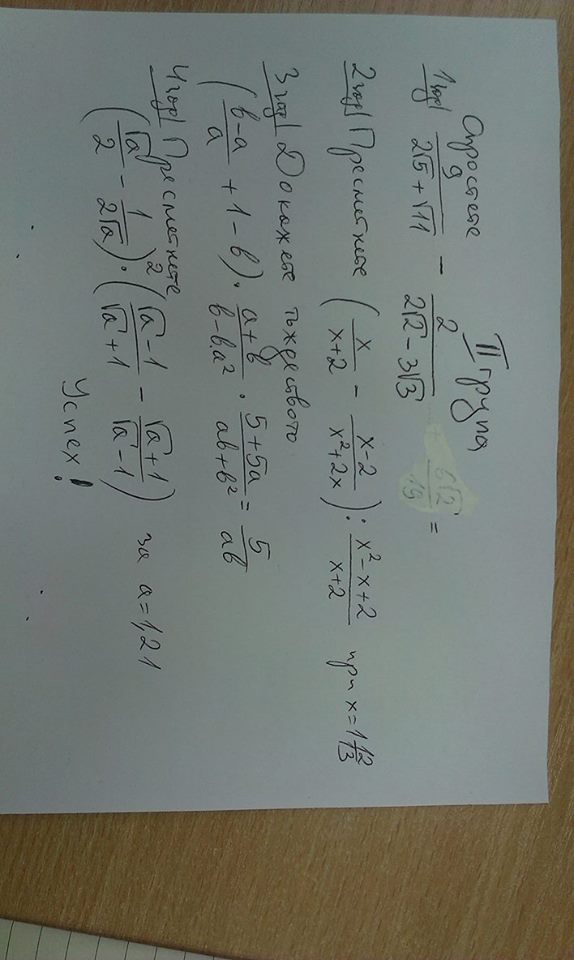 II група
Опростете
1 зад/ 9/(2√5+√11) − 2/(2√2−3√3) + 6√2/19 =
2 зад/ Пресметнете (x/(x+2) − (x−2)/(x²+2x)) : (x²−x+2)/(x+2) при x=1
3 зад/ Докажете тъждеството
((b−a)/a + 1 − b) · (a+b)/(b−b.a²) · (5+5a)/(ab+b²) = 5/(ab)
4 зад/ Пресметнете
(√a/2 − 1/(2√a))² · ((√a−1)/(√a+1) − (√a+1)/(√a−1)) за a=1,21
Успех!